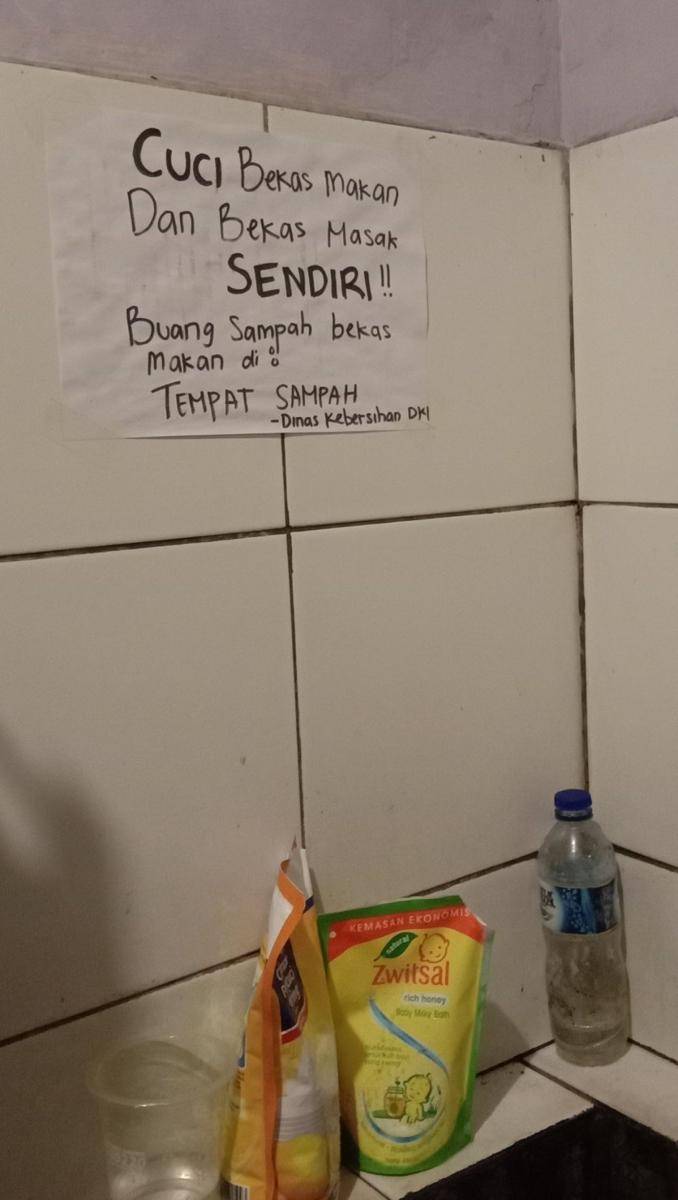 CUCI Bekas Makan
Dan Bekas Masak
SENDIRI!!
Buang Sampah bekas
Makan di :
TEMPAT SAMPAH
-Dinas Kebersihan DKI
KEMASAN EKONOMIS
natural
Zwitsal
rich honey
Body Milky Bath